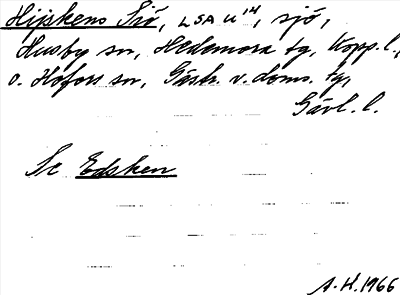 Hijskens Siö, LSA U¹⁴, sjö,
Husby sn, Hedemora tg, Kopp. l.,
o. Hofors sn, Gästr. v. doms. tg,
Gävl. l.
Se Edsken
A.H. 1966